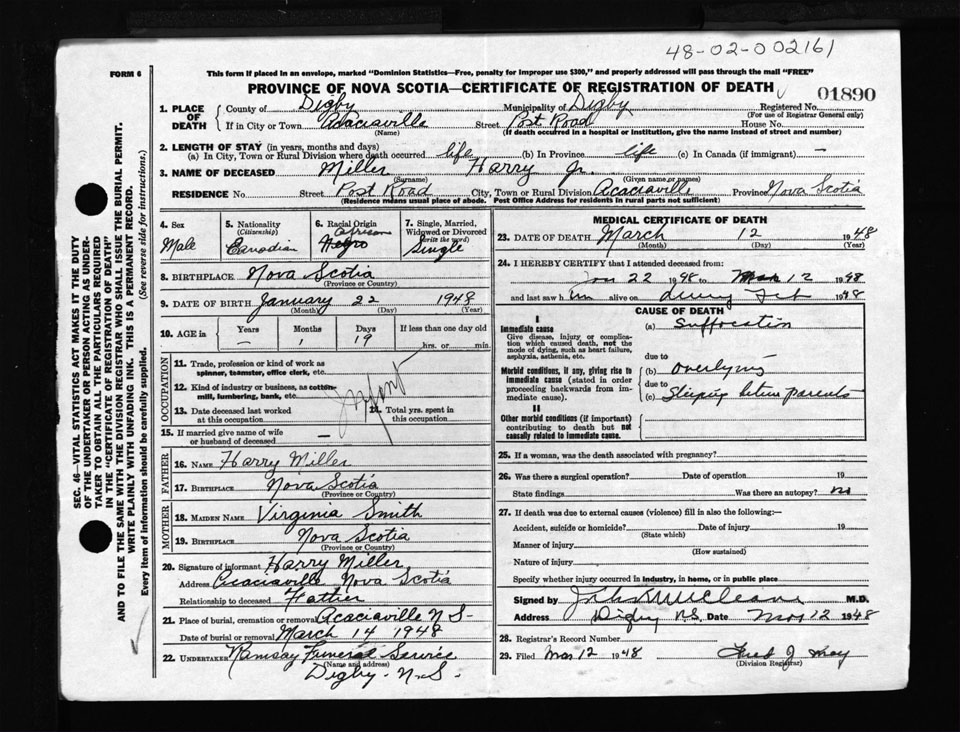 48-02-002161
FORM 6
This form if placed in an envelope, marked "Dominion Statistics—Free, penalty for improper use $300," and properly addressed will pass through the mail "FREE"
PROVINCE OF NOVA SCOTIA—CERTIFICATE OF REGISTRATION OF DEATH
01890
1. PLACE OF DEATH
County of Digby Municipality of Digby Registered No.
(For use of Registrar General only)
If in City or Town Acaciaville Street Post Road House No.
(Name) (If death occurred in a hospital or institution, give the name instead of street and number)
2. LENGTH OF STAY (in years, months and days)
(a) In City, Town or Rural Division where death occurred life (b) In Province life (c) In Canada (if immigrant) —
3. NAME OF DECEASED Miller Harry Jr.
(Surname) (Given name or names)
RESIDENCE No. Street Post Road City, Town or Rural Division Acaciaville Province Nova Scotia
(Residence means usual place of abode. Post Office Address for residents in rural parts not sufficient)
4. Sex
Male
5. Nationality
(Citizenship)
Canadian
6. Racial Origin
African
Negro
7. Single, Married, Widowed or Divorced
(write the word)
Single
8. BIRTHPLACE Nova Scotia
(Province or Country)
9. DATE OF BIRTH January 22 1948
(Month) (Day) (Year)
10. AGE in
Years Months Days If less than one day old
— 1 19 hrs. or min.
OCCUPATION
11. Trade, profession or kind of work as spinner, teamster, office clerk, etc.
12. Kind of industry or business, as cotton-mill, lumbering, bank, etc.
Infant
13. Date deceased last worked at this occupation
14. Total yrs. spent in this occupation
15. If married give name of wife or husband of deceased —
FATHER
16. NAME Harry Miller
17. BIRTHPLACE Nova Scotia
(Province or Country)
MOTHER
18. MAIDEN NAME Virginia Smith
19. BIRTHPLACE Nova Scotia
(Province or Country)
20. Signature of informant Harry Miller
Address Acaciaville Nova Scotia
Relationship to deceased Father
21. Place of burial, cremation or removal Acaciaville N S-
Date of burial or removal March 14 1948
22. UNDERTAKER Ramsay Funeral Service
(Name and address)
Digby - N.S.
MEDICAL CERTIFICATE OF DEATH
23. DATE OF DEATH March 12 1948
(Month) (Day) (Year)
24. I HEREBY CERTIFY that I attended deceased from:
Jan 22 1948 to Mar 12 1948
and last saw him alive on during Feb 1948
CAUSE OF DEATH
I
Immediate cause
Give disease, injury or complication which caused death, not the mode of dying, such as heart failure, asphyxia, asthenia, etc.
(a) Suffocation
due to
Morbid conditions, if any, giving rise to immediate cause (stated in order proceeding backwards from immediate cause).
(b) Overlying
due to
(c) Sleeping between parents
II
Other morbid conditions (if important) contributing to death but not causally related to immediate cause.
25. If a woman, was the death associated with pregnancy?
26. Was there a surgical operation? Date of operation 19
State findings Was there an autopsy? no
27. If death was due to external causes (violence) fill in also the following:—
Accident, suicide or homicide? Date of injury 19
(State which)
Manner of injury
(How sustained)
Nature of injury
Specify whether injury occurred in industry, in home, or in public place
Signed by M.D.
Address Digby N.S. Date Mar 12 1948
28. Registrar's Record Number
29. Filed Mar 12 1948
(Division Registrar)
SEC. 46—VITAL STATISTICS ACT MAKES IT THE DUTY
OF THE UNDERTAKER OR PERSON ACTING AS UNDERTAKER
TO OBTAIN ALL THE PARTICULARS REQUIRED
IN THE "CERTIFICATE OF REGISTRATION OF DEATH"
AND TO FILE THE SAME WITH THE DIVISION REGISTRAR WHO SHALL ISSUE THE BURIAL PERMIT.
WRITE PLAINLY WITH UNFADING INK. THIS IS A PERMANENT RECORD.
Every item of information should be carefully supplied. (See reverse side for instructions.)